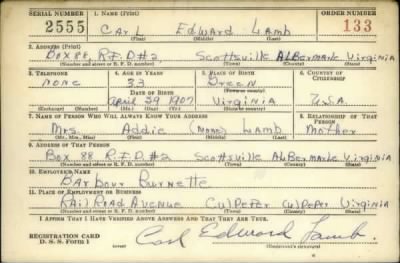 SERIAL NUMBER 1. NAME (Print) ORDER NUMBER
2555 Carl Edward Lamb 133
(First) (Middle) (Last)
2. ADDRESS (Print)
Box 88, R.F.D #2 Scottsville Albermarle Virginia
(Number and street or R. F. D. number) (Town) (County) (State)
3. TELEPHONE 4. AGE IN YEARS 5. PLACE OF BIRTH 6. COUNTRY OF CITIZENSHIP
none 33 Green
DATE OF BIRTH (Town or county)
April 29 1907 Virginia U.S.A.
(Exchange) (Number) (Mo.) (Day) (Yr.) (State or country)
7. NAME OF PERSON WHO WILL ALWAYS KNOW YOUR ADDRESS 8. RELATIONSHIP OF THAT PERSON
Mrs. Addie (none) Lamb Mother
(Mr., Mrs., Miss) (First) (Middle) (Last)
9. ADDRESS OF THAT PERSON
Box 88 R.F.D. #2 Scottsville Albermarle Virginia
(Number and street or R. F. D. number) (Town) (County) (State)
10. EMPLOYER'S NAME
Barbour Burnette
11. PLACE OF EMPLOYMENT OR BUSINESS
Rail Road Avenue Culpeper Culpeper Virginia
(Number and street or R. F. D. number) (Town) (County) (State)
I AFFIRM THAT I HAVE VERIFIED ABOVE ANSWERS AND THAT THEY ARE TRUE.
REGISTRATION CARD
D. S. S. Form 1 Carl Edward Lamb
(Registrant's signature)